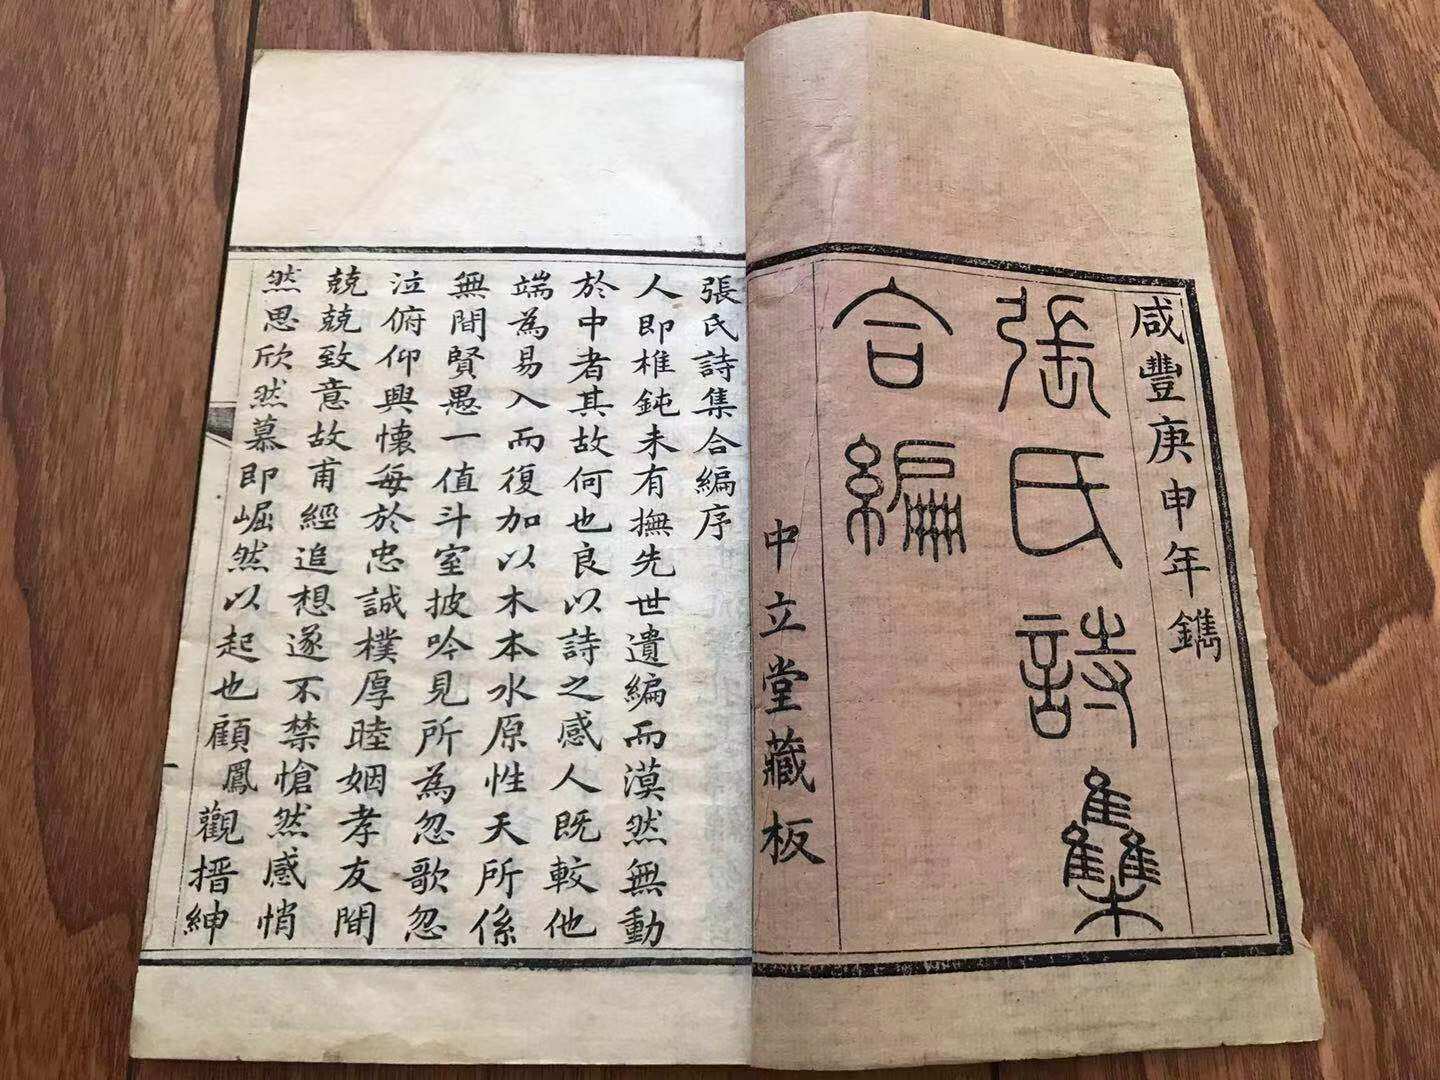 咸豐庚申年鐫
張氏詩集
合編
中立堂藏板
張氏詩集合編序
人即椎鈍未有撫先世遺編而漠然無動
於中者其故何也良以詩之感人既較他
端為易入而復加以木本水原性天所係
無間賢愚一值斗室披吟見所為忽歌忽
泣俯仰興懷每於忠誠樸厚睦姻孝友間
兢兢致意故甫經追想遂不禁愴然感悄
然思欣然慕即崛然以起也顧鳳觀搢紳